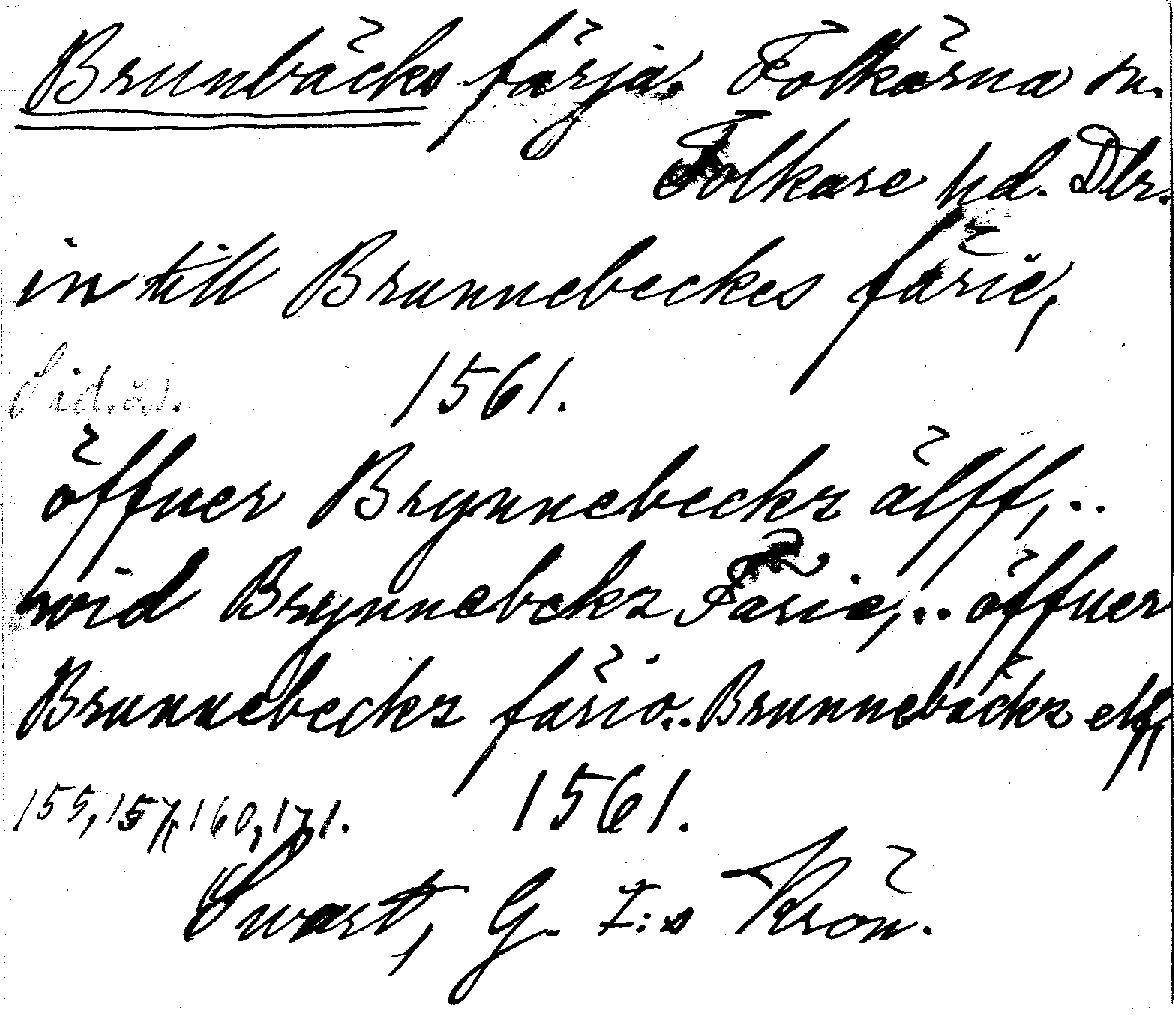 Brunbäcks färja, Folkärna sn.
Folkare hd. Dlr.
in till Brunnebeckes färie,
Sid. 1561.
öffuer Brynnebeckz älff,..
wid Brynnebekz Färie,.. öffuer
Brunnebeckz färio.. Brunnebäckz elff,
155, 157, 160, 171. 1561.
Swart, G. I:s Krön.